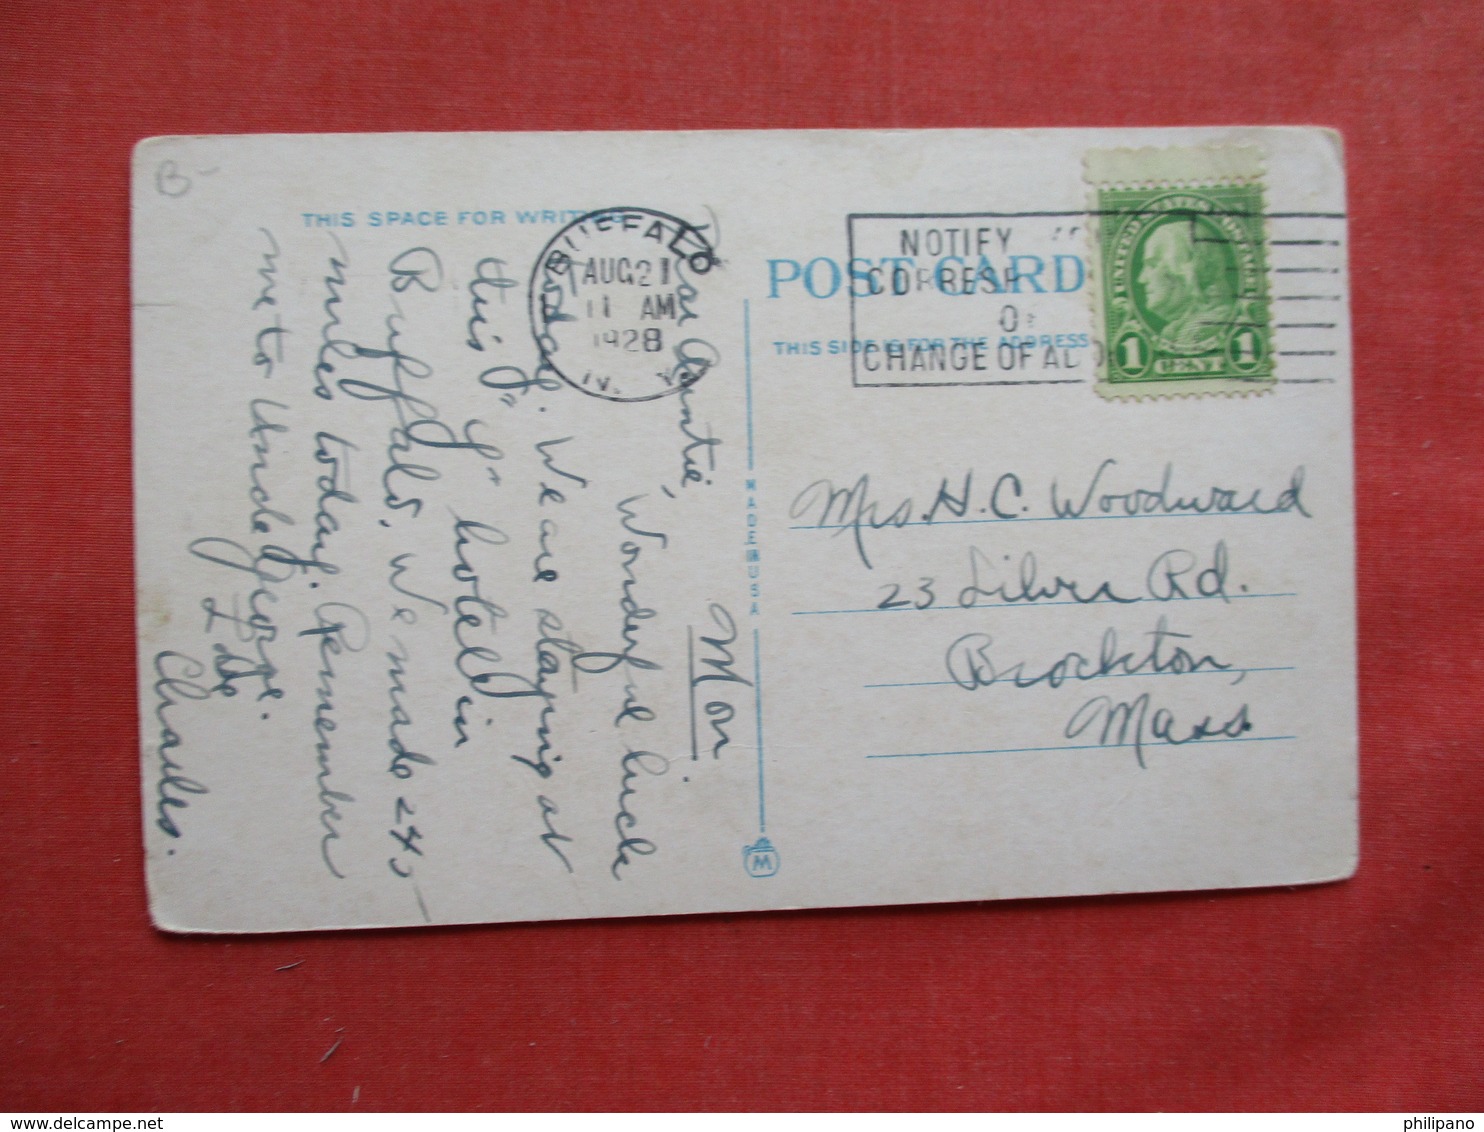 B-
THIS SPACE FOR WRITING
Mon.
Dear Auntie,
Wonderful luck
today. We are staying at
this "Y" hotel in
Buffalo. We made 245
miles today. Remember
me to Uncle George.
Love
Charles.
BUFFALO
AUG 21
11 AM
1928
N. Y.
NOTIFY
CORRES
OF
CHANGE OF AD
POST CARD
THIS SIDE IS FOR THE ADDRESS
UNITED STATES POSTAGE
1 CENT 1
MADE IN USA
M
Mrs. H. C. Woodward
23 Silver Rd.
Brockton,
Mass.
philipano
delcampe.net